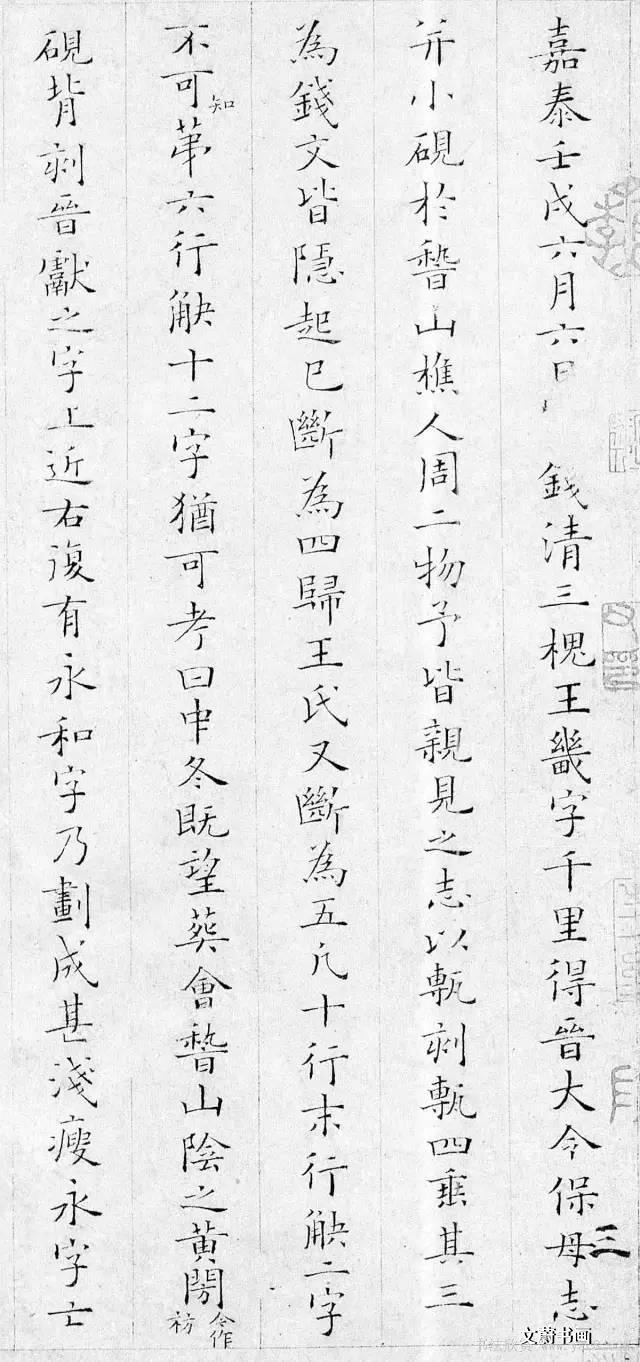 嘉泰壬戌六月六日 錢清三槐王畿字千里得晉大令保母志
并小硯於稽山樵人周二物予皆親見之志以甎刻甎四垂其三
為錢文皆隱起已斷為四歸王氏又斷為五凡十行末行觖二字
不可知苐六行觖十二字猶可考曰中冬既望葬會稽山陰之黃閍合作祊
硯背刻晉獻之字上近右復有永和字乃劃成甚淺瘦永字亡
三
文蔚书画